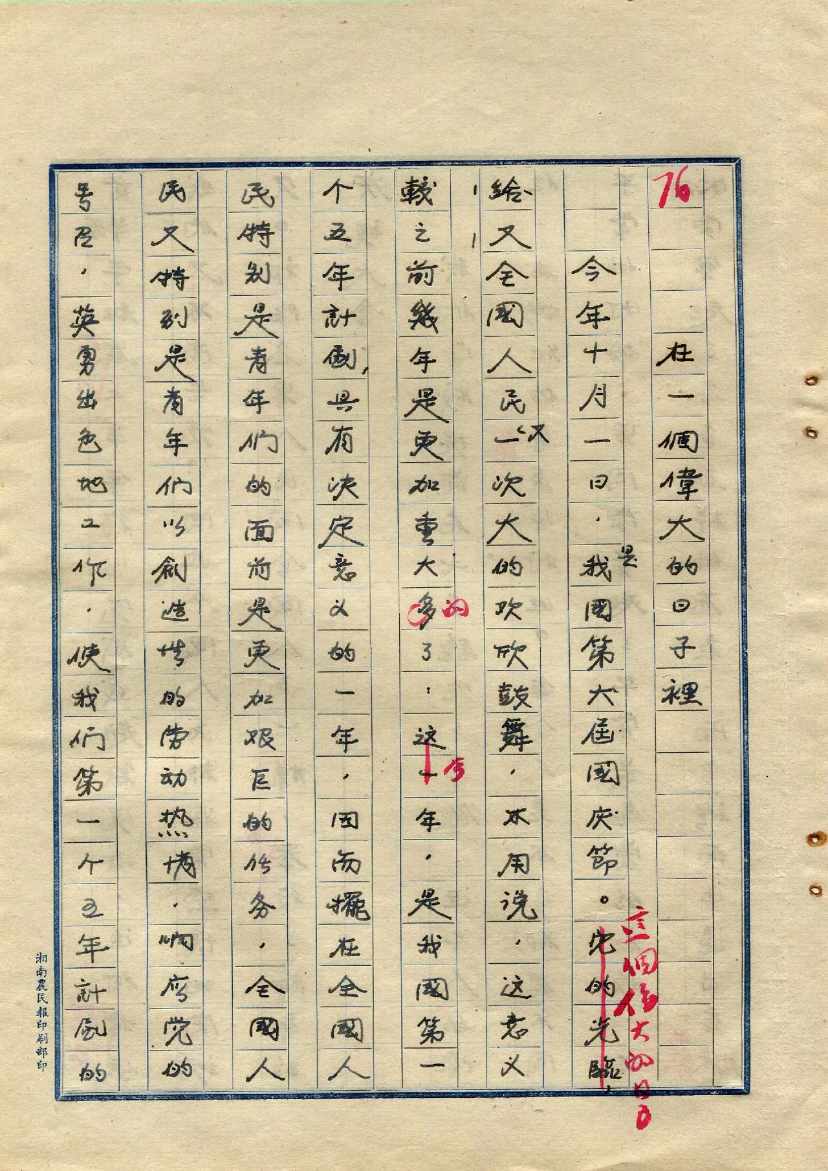 76
在一個偉大的日子裡
今年十月一日，我是國第六屆國庆節。它的光臨，
這個偉大的日子
給又全國人民一次又大的欢欣鼓舞，不用说，这意义
較之前幾年是更加重大多的了：这一年，是我國第一
今
个五年計劃，具有决定意义的一年，因而擺在全國人
民特别是青年们的面前是更加艰巨的任务，全國人
民又特别是青年们以創造性的劳动热情，响应党的
号召，英勇出色地工作，使我们第一个五年計劃的
湘南農民報印刷部印